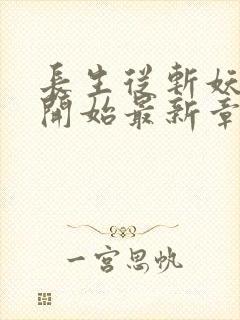 長生從斬妖
開始最新章
一宮思帆